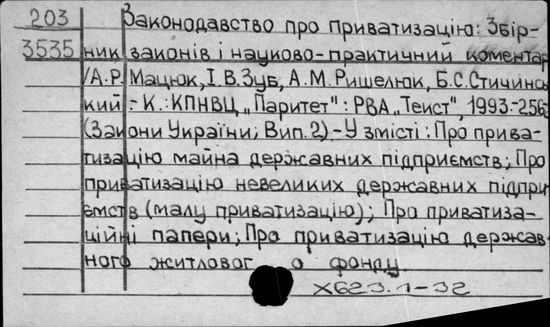 203 Законодавство про приватизацію: Збір-
3535 ник законів і науково-практичний коментар
/А.Р. Мацюк, І.В.Зуб, А.М.Ришелюк, Б.С.Стичинсь-
кий.- К.:КПНВЦ „Паритет": РВА „Текст", 1993.-256с
(Закони України; Вип.2).-У змісті: Про прива-
тизацію майна державних підприємств; Про
приватизацію невеликих державних підпри-
ємств (малу приватизацію); Про приватиза-
ційні папери; Про приватизацію держав-
ного житловог о фонду.
Х623.1-32